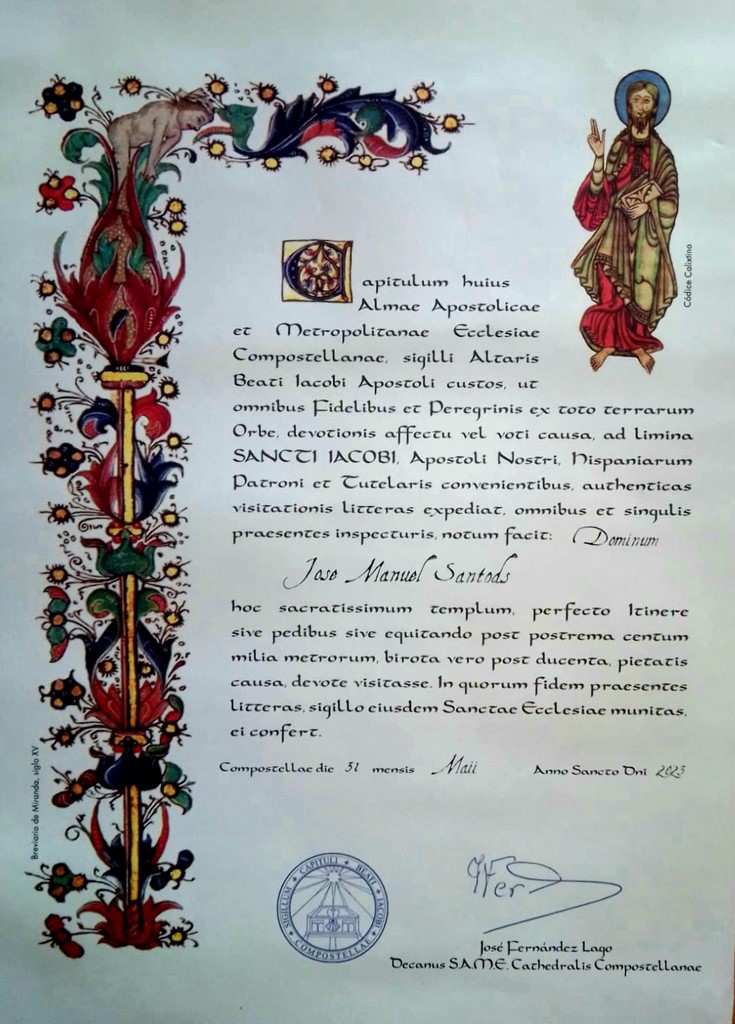 Códice Calixtino
Capitulum huius
Almae Apostolicae
et Metropolitanae Ecclesiae
Compostellanae, sigilli Altaris
Beati Iacobi Apostoli custos, ut
omnibus Fidelibus et Peregrinis ex toto terrarum
Orbe, devotionis affectu vel voti causa, ad limina
SANCTI IACOBI, Apostoli Nostri, Hispaniarum
Patroni et Tutelaris convenientibus, authenticas
visitationis litteras expediat, omnibus et singulis
praesentes inspecturis, notum facit: Dominum
Jose Manuel Santods
hoc sacratissimum templum, perfecto Itinere
sive pedibus sive equitando post postrema centum
milia metrorum, birota vero post ducenta, pietatis
causa, devote visitasse. In quorum fidem praesentes
litteras, sigillo eiusdem Sanctae Ecclesiae munitas,
ei confert.
Compostellae die 31 mensis Maii Anno Sancto Dni 2023
Breviario de Miranda, siglo XV
SIGILLUM CAPITULI BEATI IACOBI
COMPOSTELLAE
José Fernández Lago
Decanus S.A.M.E. Cathedralis Compostellanae